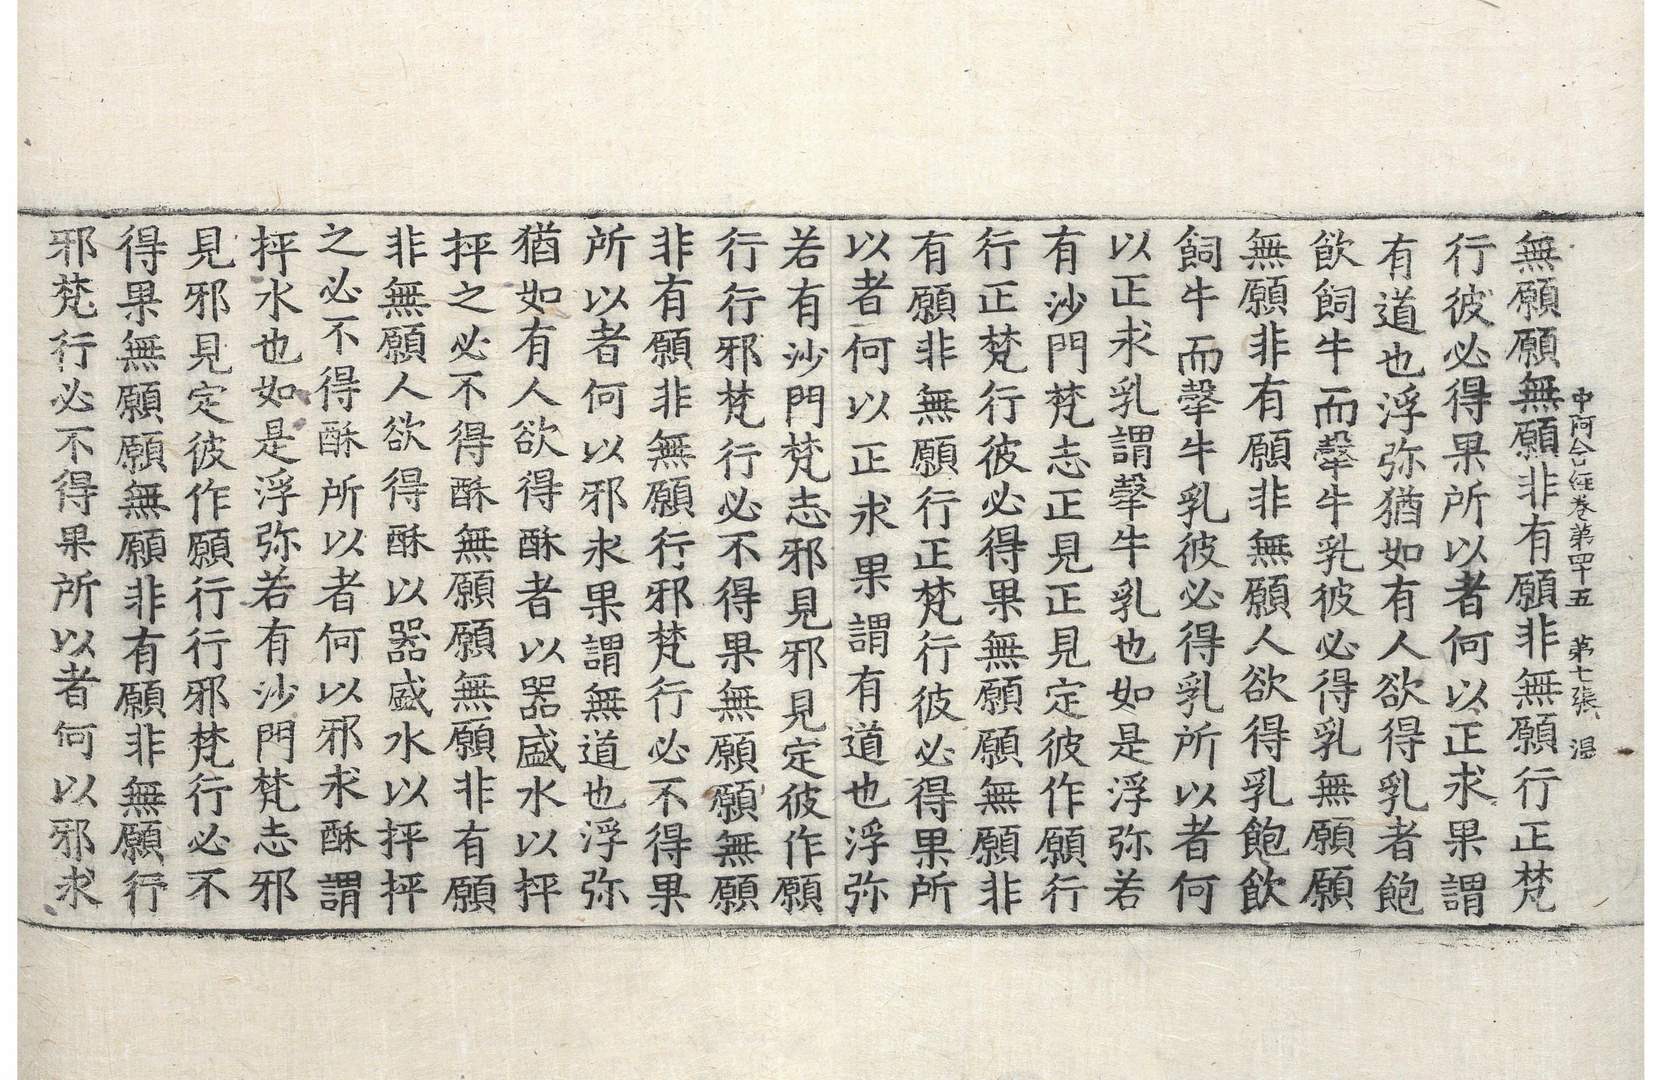 中阿含経卷第四十五 第七張
無願願無願非有願非無願行正梵
行彼必得果所以者何以正求果謂
有道也浮弥猶如有人欲得乳者飽
飲飼牛而㹌牛乳彼必得乳無願願
無願非有願非無願人欲得乳飽飲
飼牛而㹌牛乳彼必得乳所以者何
以正求乳謂㹌牛乳也如是浮弥若
有沙門梵志正見正見定彼作願行
行正梵行彼必得果無願願無願非
有願非無願行正梵行彼必得果所
以者何以正求果謂有道也浮弥
若有沙門梵志邪見邪見定彼作願
行行邪梵行必不得果無願願無願
非有願非無願行邪梵行必不得果
所以者何以邪求果謂無道也浮弥
猶如有人欲得酥者以器盛水以抨
抨之必不得酥無願願無願非有願
非無願人欲得酥以器盛水以抨抨
之必不得酥所以者何以邪求酥謂
抨水也如是浮弥若有沙門梵志邪
見邪見定彼作願行行邪梵行必不
得果無願願無願非有願非無願行
邪梵行必不得果所以者何以邪求